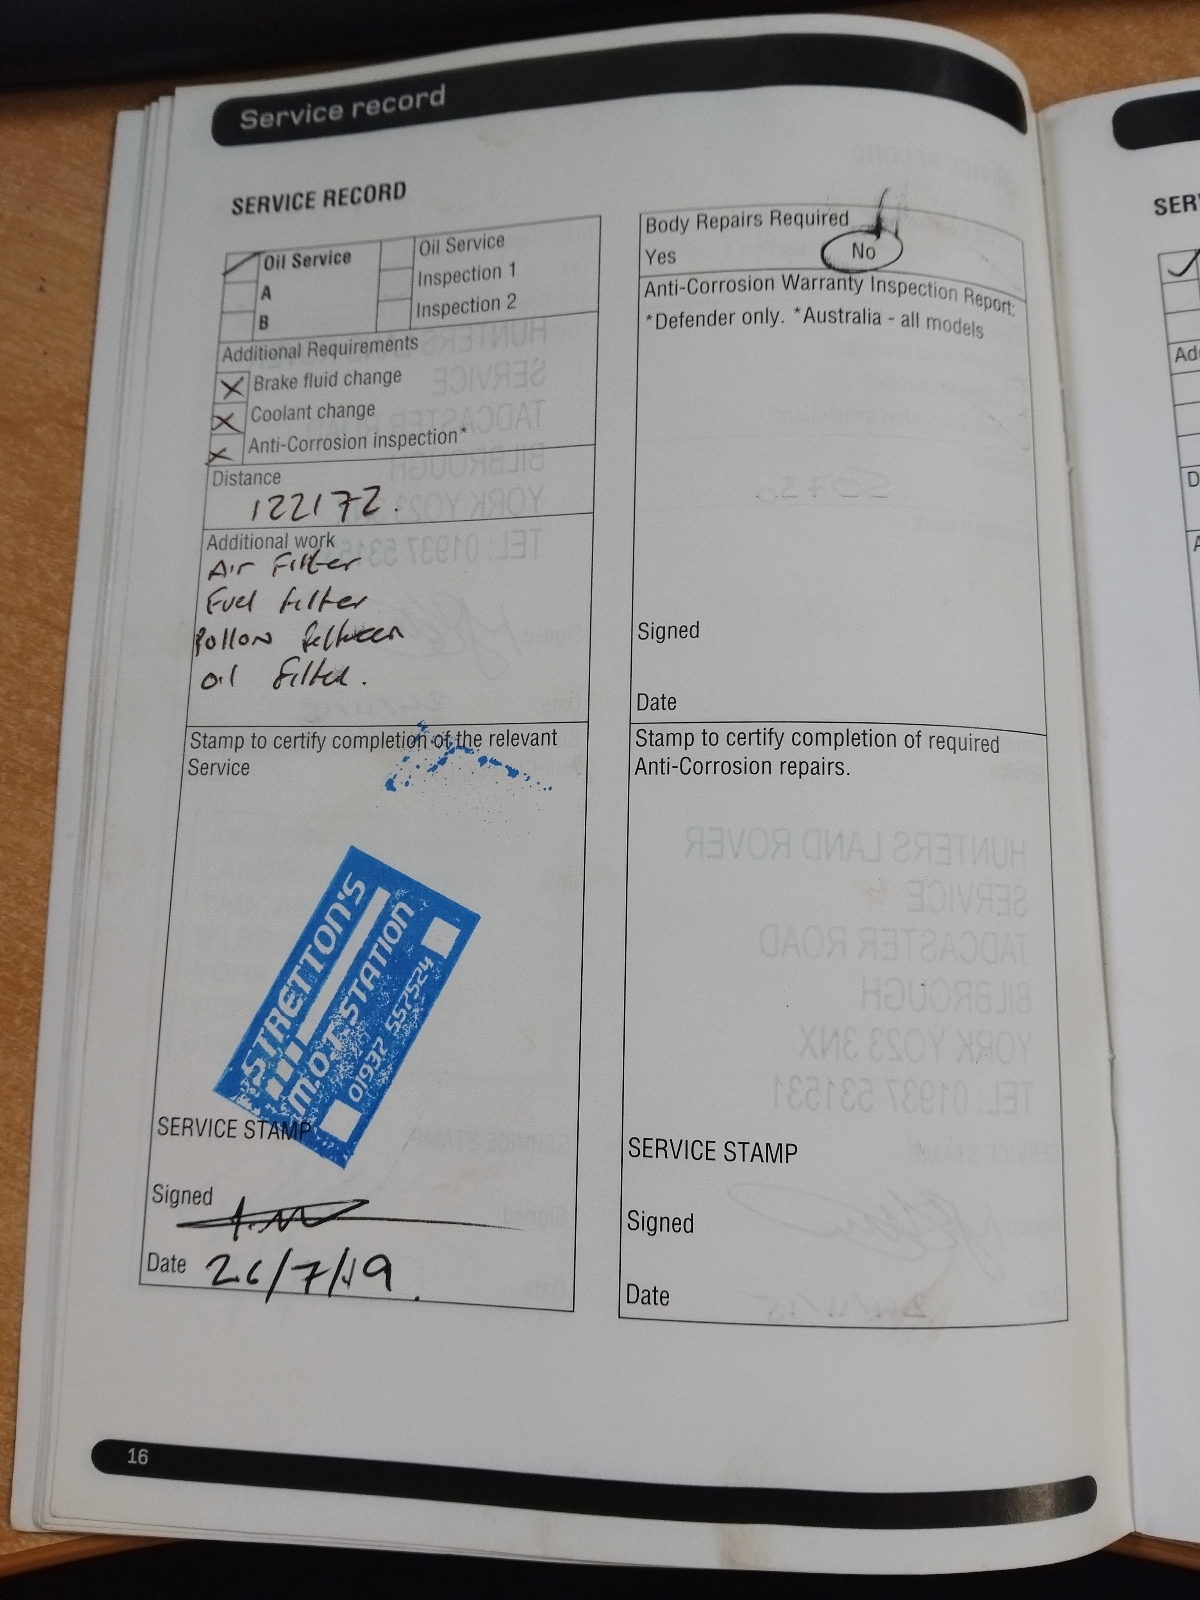 Service record
SERVICE RECORD
Oil Service
A
B
Oil Service
Inspection 1
Inspection 2
Additional Requirements
Brake fluid change
Coolant change
Anti-Corrosion inspection*
Distance
122172.
Additional work
Air Filter
Fuel filter
Pollon
Oil Filter.
Stamp to certify completion of the relevant
Service
STRETTON'S
M.O.T. STATION
01937 557524
SERVICE STAMP
Signed
Date 26/7/19.
Body Repairs Required
Yes No
Anti-Corrosion Warranty Inspection Report:
*Defender only. *Australia - all models
Signed
Date
Stamp to certify completion of required
Anti-Corrosion repairs.
SERVICE STAMP
Signed
Date
16
HUNTERS LAND ROVER
SERVICE
TADCASTER ROAD
BILBROUGH
YORK YO23 3NX
TEL. 01937 531531